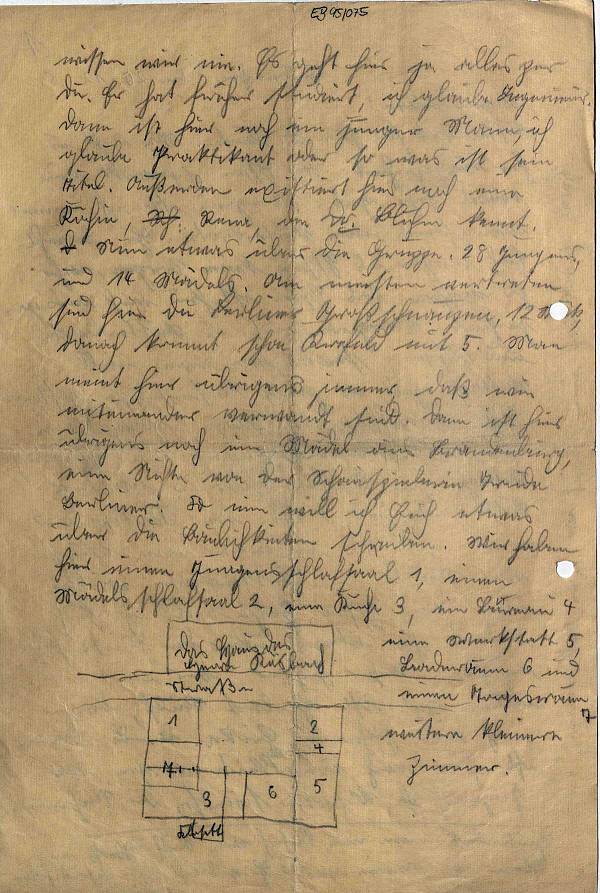 EB 95/075
wissen wir nie. Es geht hier ja alles per
Du. Er hat früher studiert, ich glaube Ingenieur.
Dann ist hier noch ein junger Mann, ich
glaube Praktikant oder so was ist sein
Titel. Außerdem existiert hier noch eine
Köchin, Rena, die Blühm kennt.
Nun etwas über die Gruppe. 28 Jungens,
und 14 Mädels. Am meisten vertreten
sind hier die Berliner Großschnauzen, 12 Stück,
danach kommt schon Krefeld mit 5. Man
meint hier übrigens immer, daß wir
miteinander verwandt sind. Dann ist hier
übrigens noch ein Mädel aus Brandenburg,
eine Nichte von der Schauspielerin Trude
Berliner. Nun will ich Euch etwas
über die Baulichkeiten schreiben. Wir haben
hier einen Jungensschlafsaal 1, einen
Mädelsschlafsaal 2, eine Küche 3, ein Büro 4
eine Werkstatt 5,
Baderäume 6 und
einen Tagesraum 7
weitere kleinere
Zimmer.
Das Haus des
Straße
1
2
4
7
3
6
5
Klosett